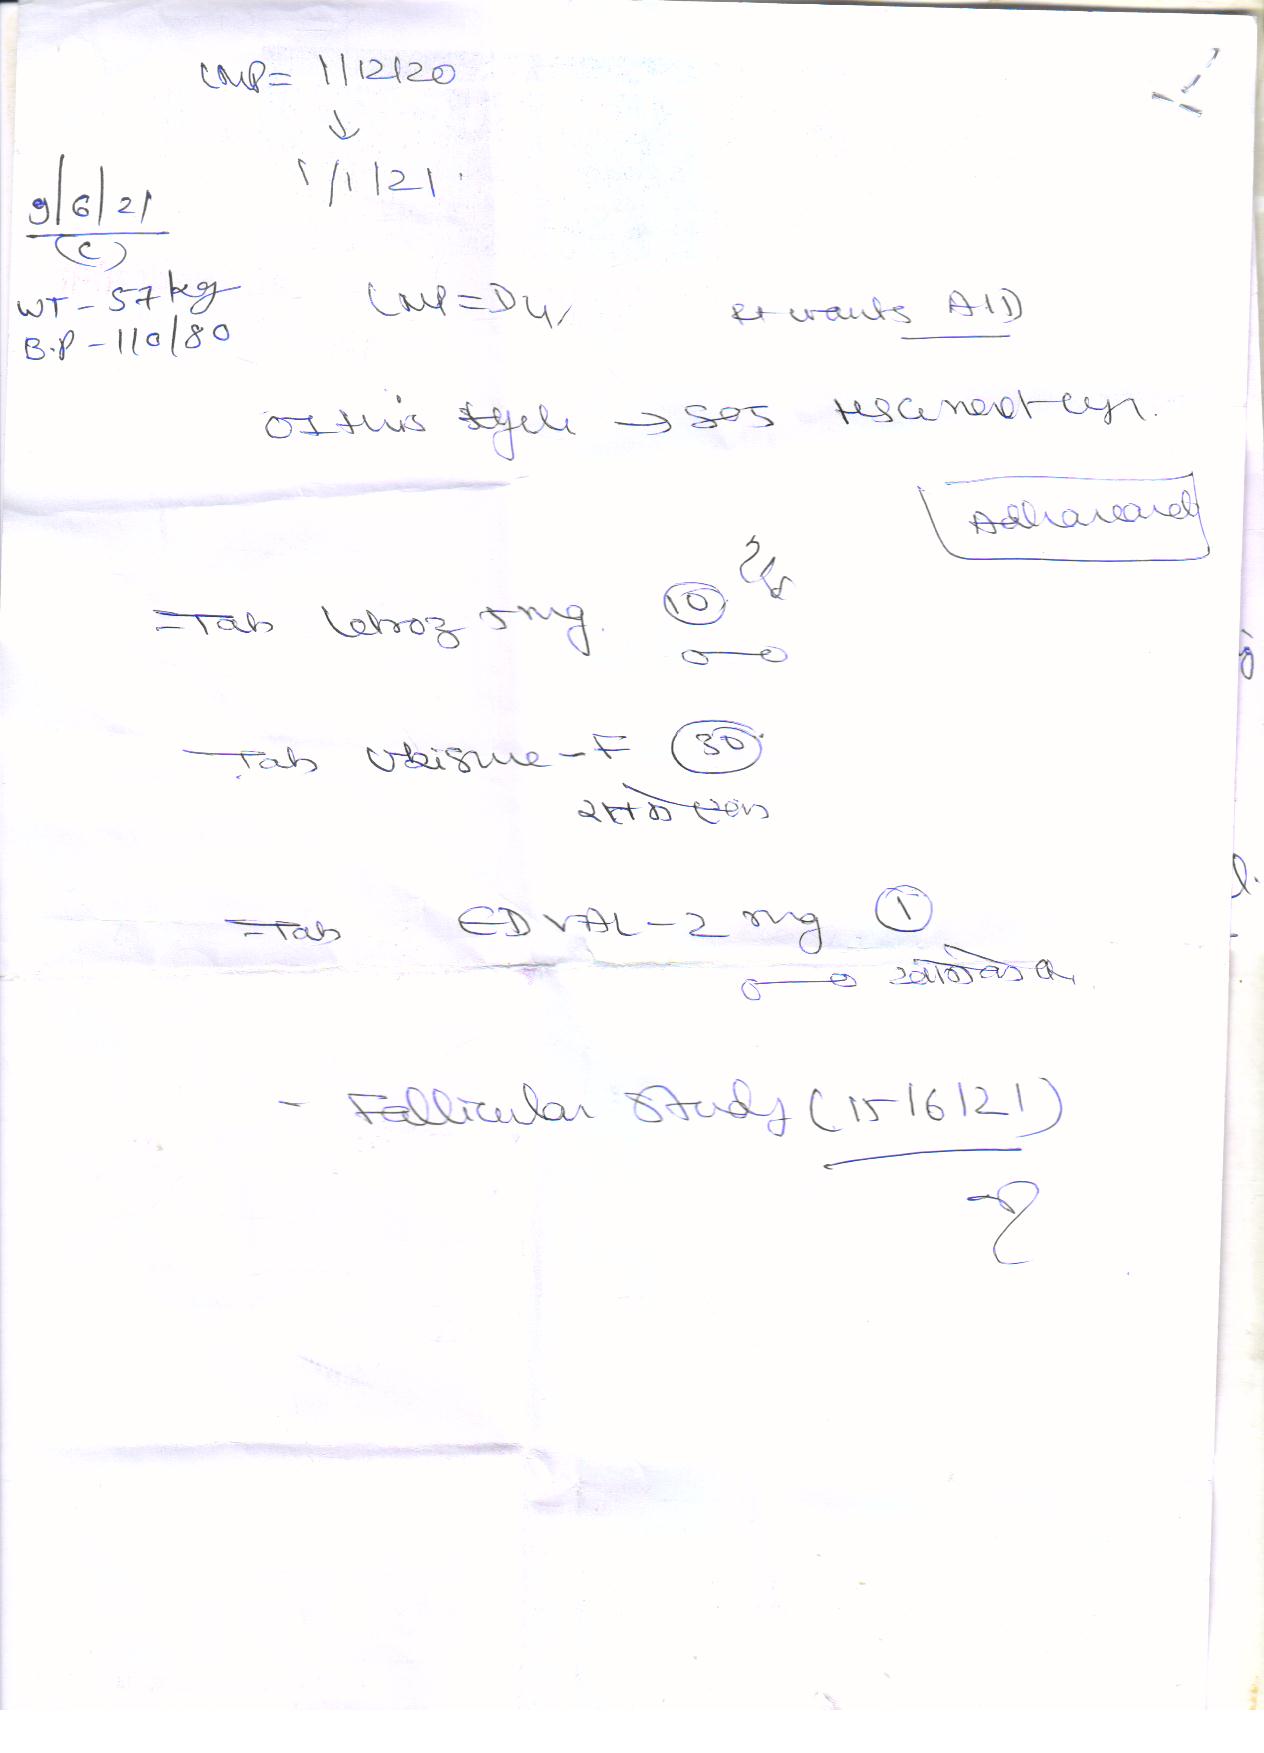 LMP = 1/12/20
↓
1/1/21
9/6/21
(C)
WT - 57 kg
B.P - 110/80
LMP = D4
Pt wants AID
OI this cycle → SOS HSG next cyc.
Adharcard
Tab Letroz 5 mg. 10
Tab -F 30
Tab EDVAL - 2 mg 1
- Follicular Study (15/6/21)